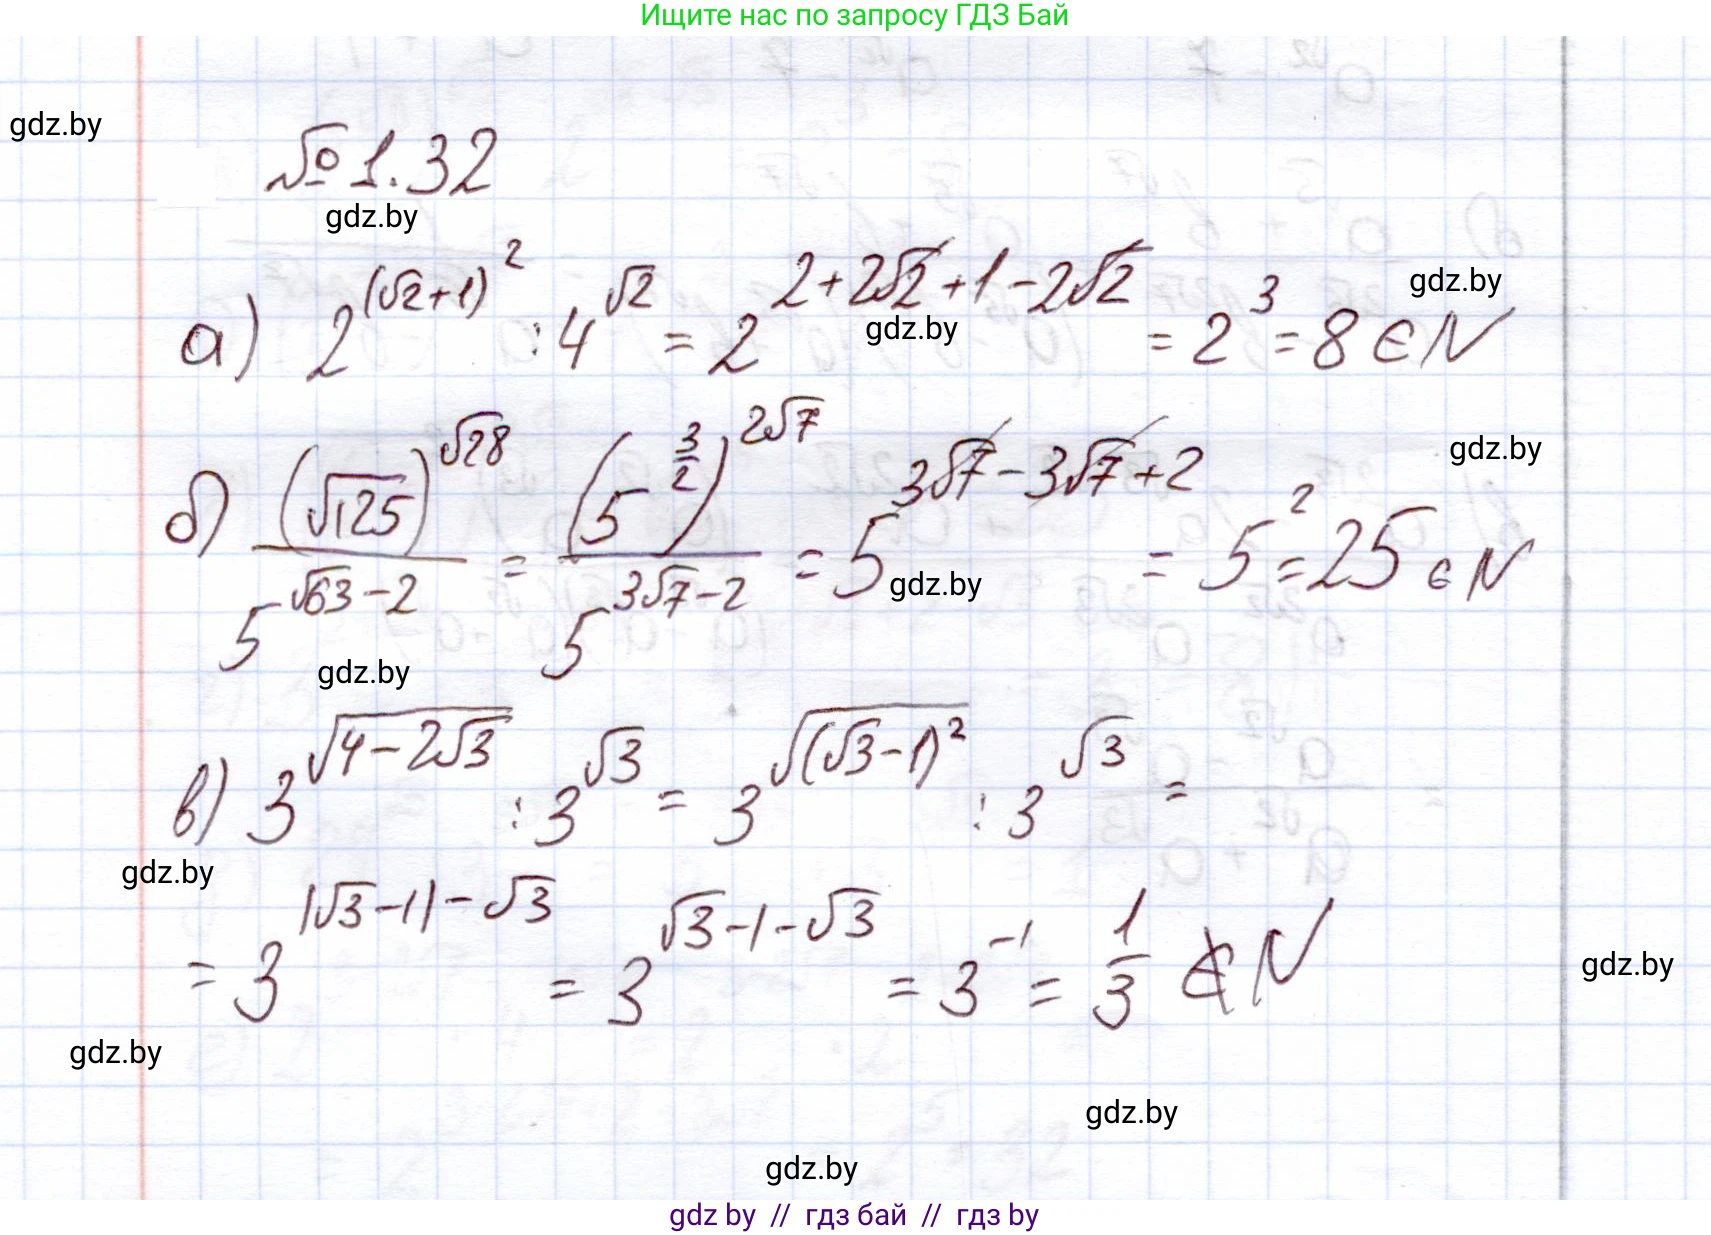 Ищите нас по запросу ГДЗ Бай
gdz.by
№ 1.32
gdz.by
а) 2^{(√2+1)^2} : 4^{√2} = 2^{2+2√2+1-2√2} = 2^3 = 8 ∈ N
gdz.by
gdz.by
б) (√125)^{√28} / 5^{√63-2} = (5^{3/2})^{2√7} / 5^{3√7-2} = 5^{3√7-3√7+2} = 5^2 = 25 ∈ N
gdz.by
gdz.by
gdz.by
в) 3^{√(4-2√3)} : 3^{√3} = 3^{√((√3-1)^2)} : 3^{√3} =
gdz.by
= 3^{|√3-1|-√3} = 3^{√3-1-√3} = 3^{-1} = 1/3 ∉ N
gdz.by
gdz.by
gdz.by
gdz.by
gdz by // гдз бай // гдз by